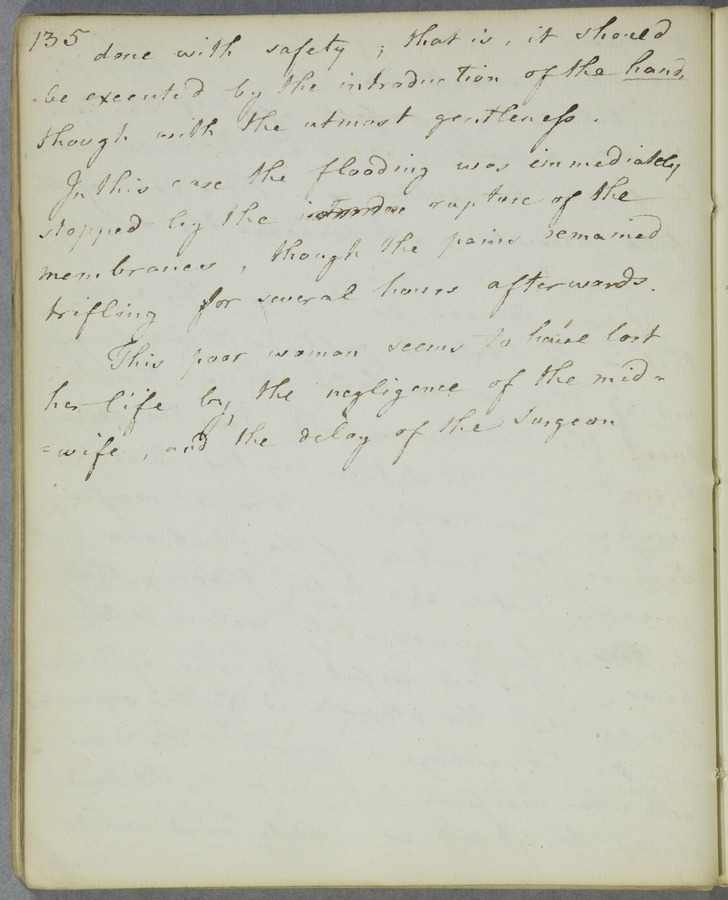 135
done with safety ; that is, it should
be executed by the introduction of the hand,
though with the utmost gentleness.
In this case the flooding was immediately
stopped by the rupture of the
membranes, though the pains remained
trifling for several hours afterwards.
This poor woman seems to have lost
her life by the negligence of the mid=
=wife, and the delay of the Surgeon